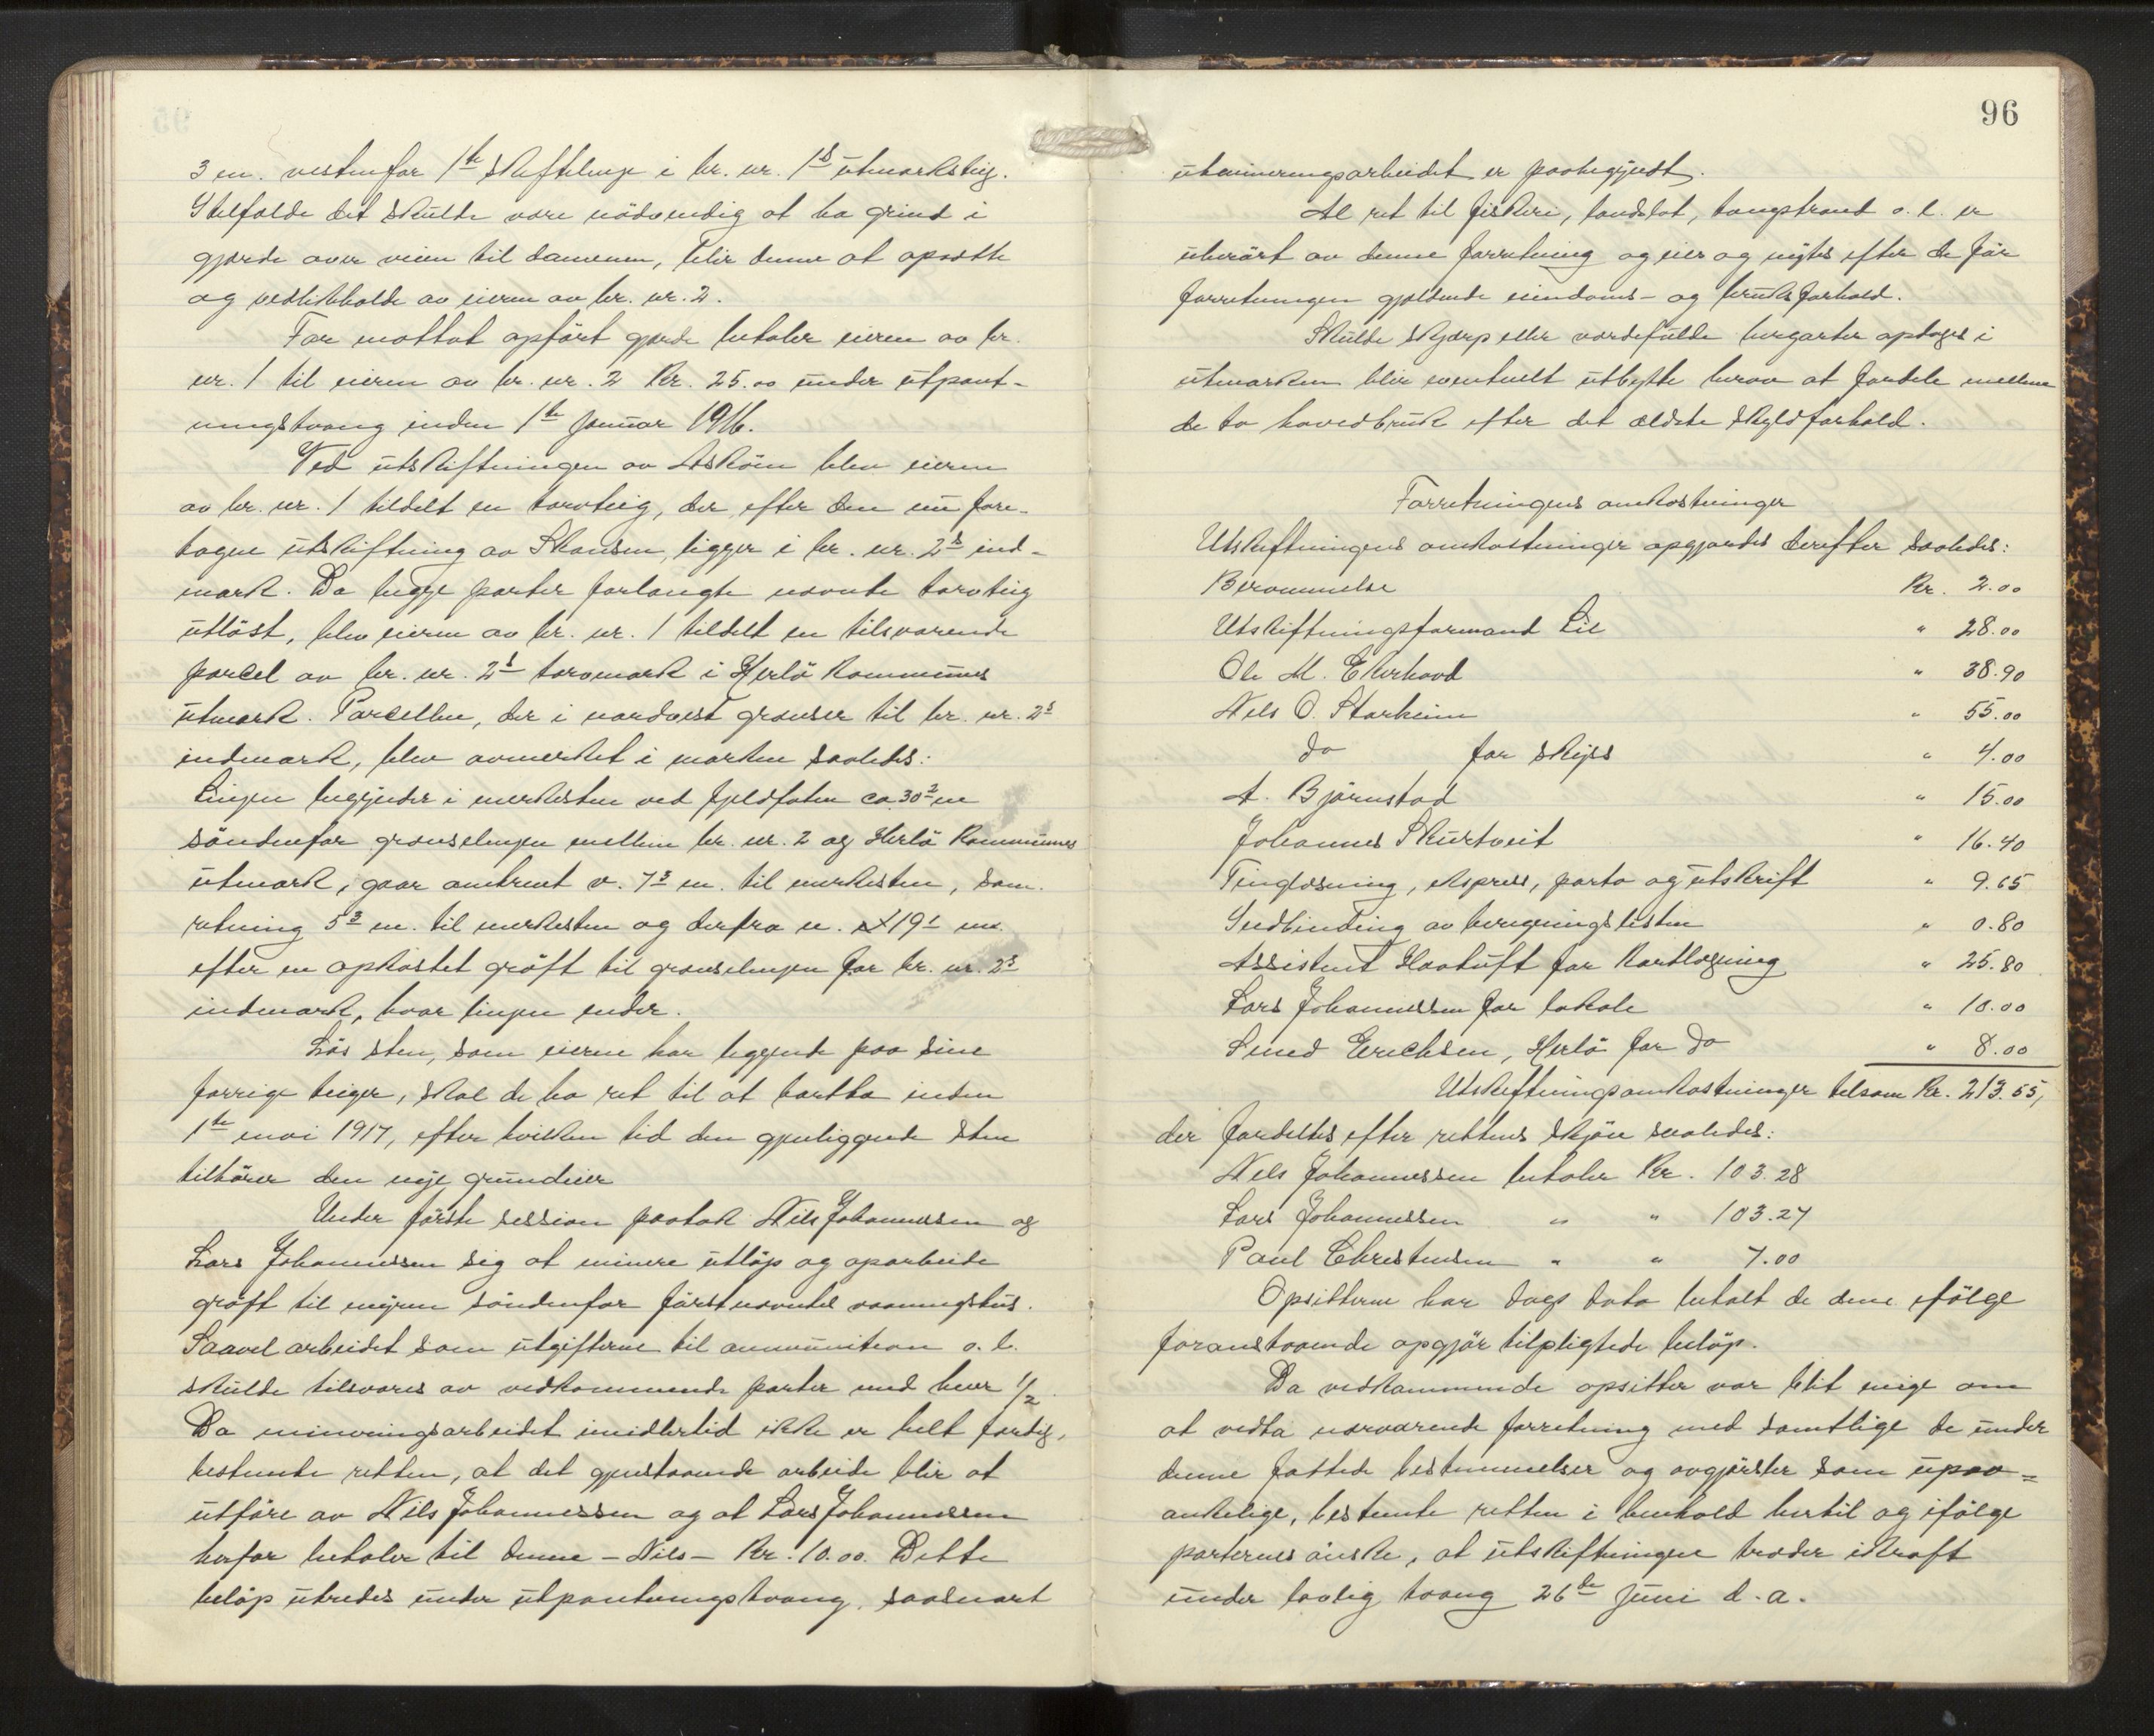 3 m. vestenfor 1ste skiftelinje i br. nr. 1s utmarksteig.
I tilfælde det skulde være nödvendig at ha grind i
gjerde over veien til dammen, blir denne at opsætte
og vedlikeholde av eieren av br. nr. 2.
For mottat opfört gjerde betaler eieren av br.
nr. 1 til eieren av br. nr. 2 Kr. 25.00 under utpant-
ningstvang inden 1ste januar 1916.
Ved utskiftningen av Asköen blev eieren
av br. nr. 1 tildelt en torvteig, der efter den nu fore-
tagne utskiftning av Skansen, ligger i br. nr. 2s ind-
mark. Da begge parter forlangte nævnte torvteig
utlöst, blev eieren av br. nr. 1 tildelt en tilsvarende
parcel av br. nr. 2s torvmark i Herlö kommunes
utmark. Parcellen, der i nordvest grænser til br. nr. 2s
indmark, blev avmerket i marken saaledes:
Linjen begynder i merkesten ved fjeldfoten ca 30 2 m
söndenfor grænselinjen mellem br. nr. 2 og Herlö kommunes
utmark, gaar omtrent v. 7 3 m. til merkesten, sam.
retning 5 3 m. til merkesten og derfra n. 19 1 m.
efter en opkastet gröft til grænselinjen for br. nr. 2s
indmark, hvor linjen ender.
Lös sten, som eierne har liggende paa sine
forrige teiger, skal de ha ret til at bortta inden
1ste mai 1917, efter hvilken tid den gjenliggende sten
tilhörer den nye grundeier
Under förste session paatok Nils Johannessen og
Lars Johannessen sig at minere utlöp og oparbeide
gröft til myren söndenfor förstnævntes vaaningshus.
Saavel arbeidet som utgifterne til ammunition o. l.
skulde tilsvares av vedkommende parter med hver 1/2.
Da mineringsarbeidet imidlertid ikke er helt færdig,
bestemte retten, at det gjenstaaende arbeide blir at
utföre av Nils Johannessen og at Lars Johannessen
herfor betaler til denne - Nils - Kr. 10.00. Dette
belöp utredes under utpantningstvang, saasnart
96
utmineringsarbeidet er paabegyndt.
Al ret til fiskeri, landslot, tangstrand o. l. er
uberört av denne forretning og eies og nytes efter de för
forretningen gjældende eiendoms- og bruksforhold.
Skulde skjærp eller værdifulde bergarter optages i
utmarken blir eventuelt utbytte herav at fordele mellem
de to hovedbruk efter det ældste skyldforhold.
Forretningens omkostninger
Utskiftningens omkostninger opgjordes derefter saaledes:
Berammelse Kr. 2.00
Utskiftningsformand Lie " 28.00
Ole M. Ekerhovd " 38.90
Nils O. Storheim " 55.00
do for skyss " 4.00
A. Björnstad " 15.00
Johannes Skurtveit " 16.40
Tinglæsning, ekspress, porto og utskrift " 9.65
Indbinding av beregningslisten " 0.80
Assistent Hovtuft for kartlægning " 25.80
Lars Johannessen for lokale " 10.00
Smed Erichsen, Herlö for do " 8.00
Utskiftningsomkostninger tilsam Kr. 213.55,
der fordeltes efter rettens skjön saaledes:
Nils Johannessen betaler Kr. 103.28
Lars Johannessen " " 103.27
Paul Christensen " " 7.00
Opsitterne har dags dato betalt de dem ifölge
foranstaaende opgjör tilpligtede belöp.
Da vedkommende opsitter var blit enige om
at vedta nærværende forretning med samtlige de under
denne fattede bestemmelser og avgjörelser som upaa-
ankelige, bestemte retten i henhold hertil og ifölge
parternes önske, at utskiftningen træder ikraft
under lovlig tvang 26de juni d. a.